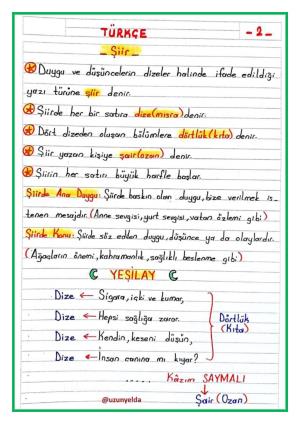 TÜRKÇE -2-
Şiir
Duygu ve düşüncelerin dizeler halinde ifade edildiği
yazı türüne şiir denir.
Şiirde her bir satıra dize(mısra) denir.
Dört dizeden oluşan bölümlere dörtlük(kıta) denir.
Şiir yazan kişiye şair(ozan) denir.
Şiirin her satırı büyük harfle başlar.
Şiirde Ana Duygu: Şiirde baskın olan duygu, bize verilmek is-
tenen mesajdır. (Anne sevgisi, yurt sevgisi, vatan özlemi gibi)
Şiirde Konu: Şiirde söz edilen duygu, düşünce ya da olaylardır.
(Ağaçların önemi, kahramanlık, sağlıklı beslenme gibi.)
YEŞİLAY
Dize ← Sigara, içki ve kumar,
Dize ← Hepsi sağlığa zarar.
Dize ← Kendin, keseni düşün,
Dize ← İnsan canına mı kıyar?
Dörtlük
(Kıta)
..... Kâzım SAYMALI
Şair (Ozan)
@uzunyelda